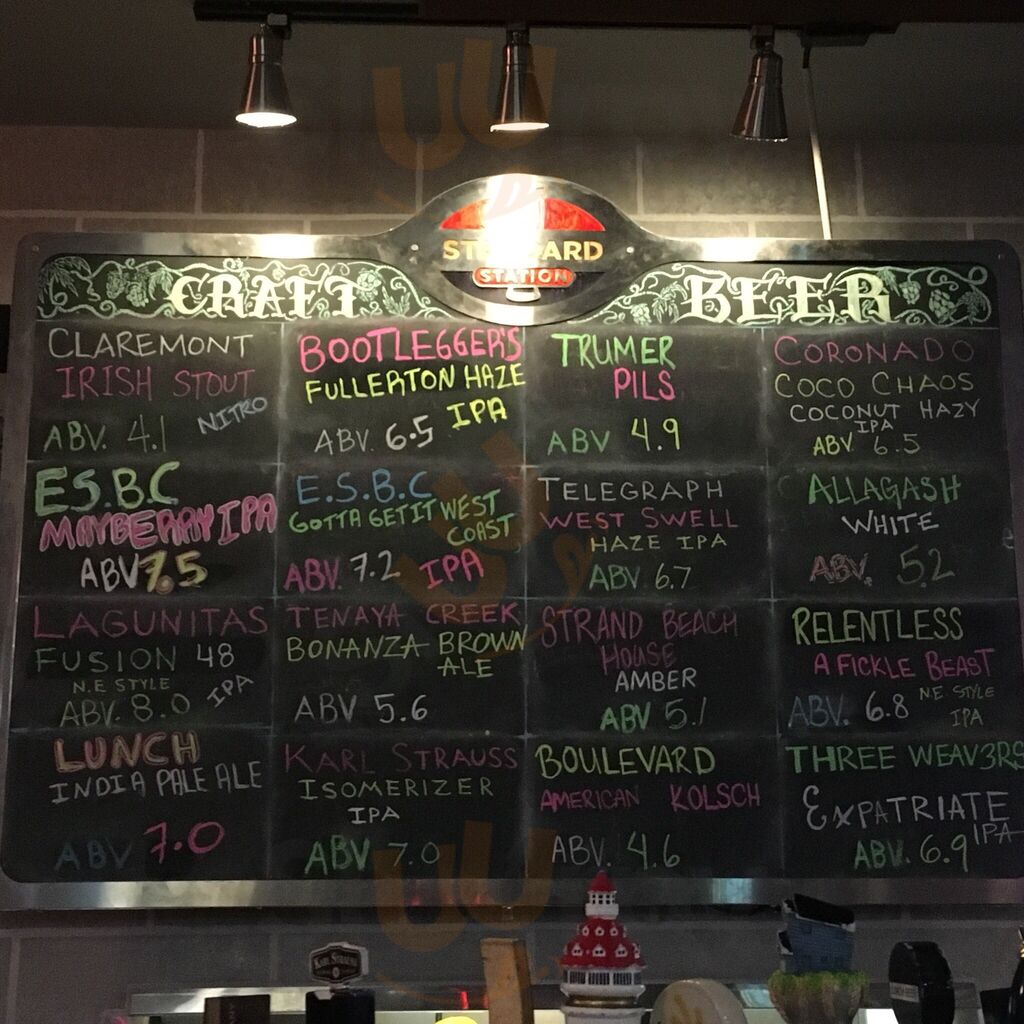 STANDARD
STATION
CRAFT BEER
CLAREMONT
IRISH STOUT
NITRO
ABV. 4.1
BOOTLEGGER'S
FULLERTON HAZE
IPA
ABV. 6.5
TRUMER
PILS
ABV 4.9
CORONADO
COCO CHAOS
COCONUT HAZY
IPA
ABV 6.5
E.S.B.C
MAYBERRY IPA
ABV 7.5
E.S.B.C
GOTTA GET IT WEST
COAST
ABV. 7.2 IPA
TELEGRAPH
WEST SWELL
HAZE IPA
ABV 6.7
ALLAGASH
WHITE
ABV. 5.2
LAGUNITAS
FUSION 48
N.E STYLE
IPA
ABV. 8.0
TENAYA CREEK
BONANZA BROWN
ALE
ABV 5.6
STRAND BEACH
HOUSE
AMBER
ABV 5.1
RELENTLESS
A FICKLE BEAST
ABV. 6.8 N.E. STYLE
IPA
LUNCH
INDIA PALE ALE
ABV 7.0
KARL STRAUSS
ISOMERIZER
IPA
ABV 7.0
BOULEVARD
AMERICAN KOLSCH
ABV. 4.6
THREE WEAV3RS
EXPATRIATE
IPA
ABV. 6.9
KARL STRAUSS